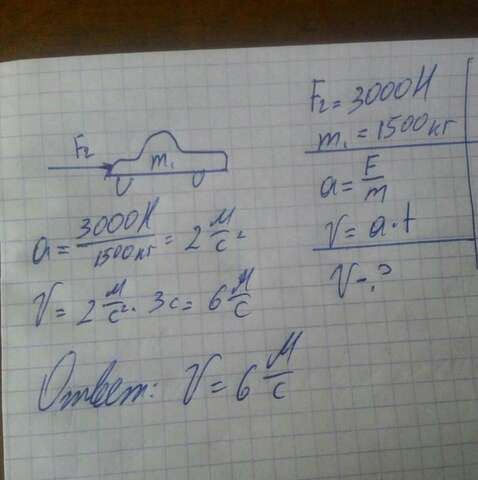 F₂ = 3000Н
m₁ = 1500кг
a = F/m
V = a·t
V - ?
F₂
m₁
a = 3000Н/1500кг = 2 м/с²
V = 2 м/с² · 3с = 6 м/с
Ответ: V = 6 м/с